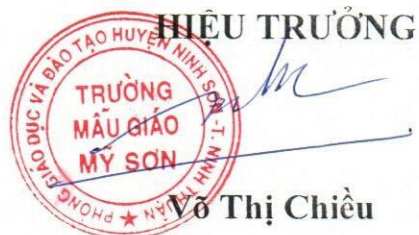 HIỆU TRƯỞNG
PHÒNG GIÁO DỤC VÀ ĐÀO TẠO HUYỆN NINH SƠN - T. NINH THUẬN
TRƯỜNG
MẪU GIÁO
MỸ SƠN
Võ Thị Chiều